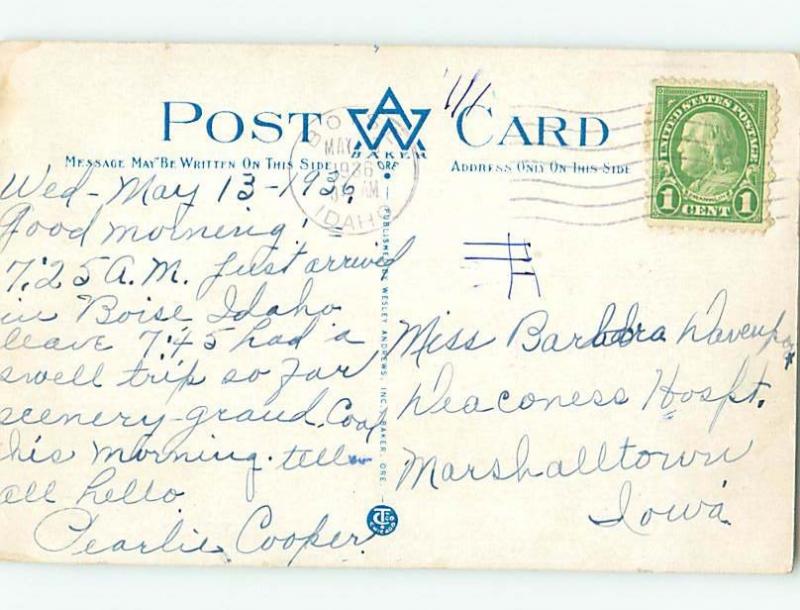 POST CARD
AW
BAKER
ORE.
MESSAGE MAY BE WRITTEN ON THIS SIDE
ADDRESS ONLY ON THIS SIDE
BOISE
MAY
1936
AM
IDAHO
UNITED STATES POSTAGE
FRANKLIN
1 CENT 1
Wed - May 13 - 1936
Good morning!
7:25 A.M. Just arrived
in Boise Idaho
leave 7:45 had a
swell trip so far
scenery - grand. Cool
this morning. tell
all hello
Pearlie Cooper.
PUBLISHED BY WESLEY ANDREWS, INC., BAKER, ORE.
Miss Barbara Davenport
Deaconess Hospt.
Marshalltown
Iowa